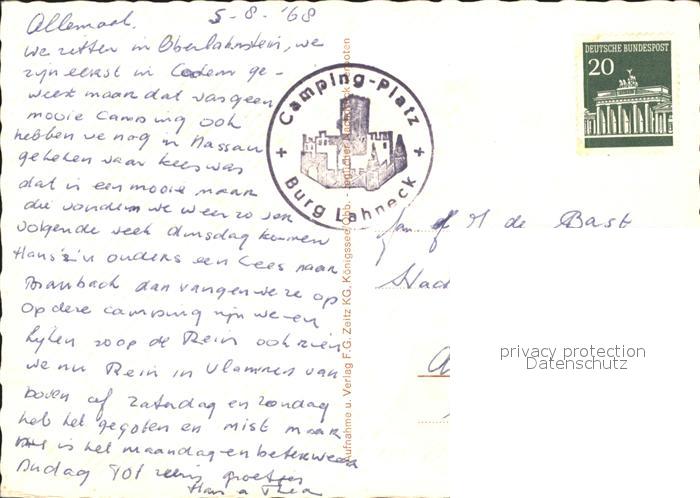 Allemaal. 5-8-'68
we zitten in Oberlahnstein, we
zijn eerst in Cochem ge-
weest maar dat was geen
mooie camping ook
hebben we nog in Nassau
gekeken waar Kees was
dat is een mooie maar
die vonden we weer zo
volgende week dinsdag kommen
Hans z'n ouders een Cees naar
Braubach dan vangen we ze op
op deze camping zijn we en
kijken zoo op de Rein ook zien
we nu Rein in Vlammen van
boven af zaterdag en zondag
heb het gegoten en mist maar
is het maandag en beter weer
groetjes
Hans a Thea
Camping-Platz
+ +
Burg Lahneck
DEUTSCHE BUNDESPOST
20
Aan M de Bast
privacy protection
Datenschutz
Aufnahme u. Verlag F.G. Zeitz KG, Königssee/Obb.